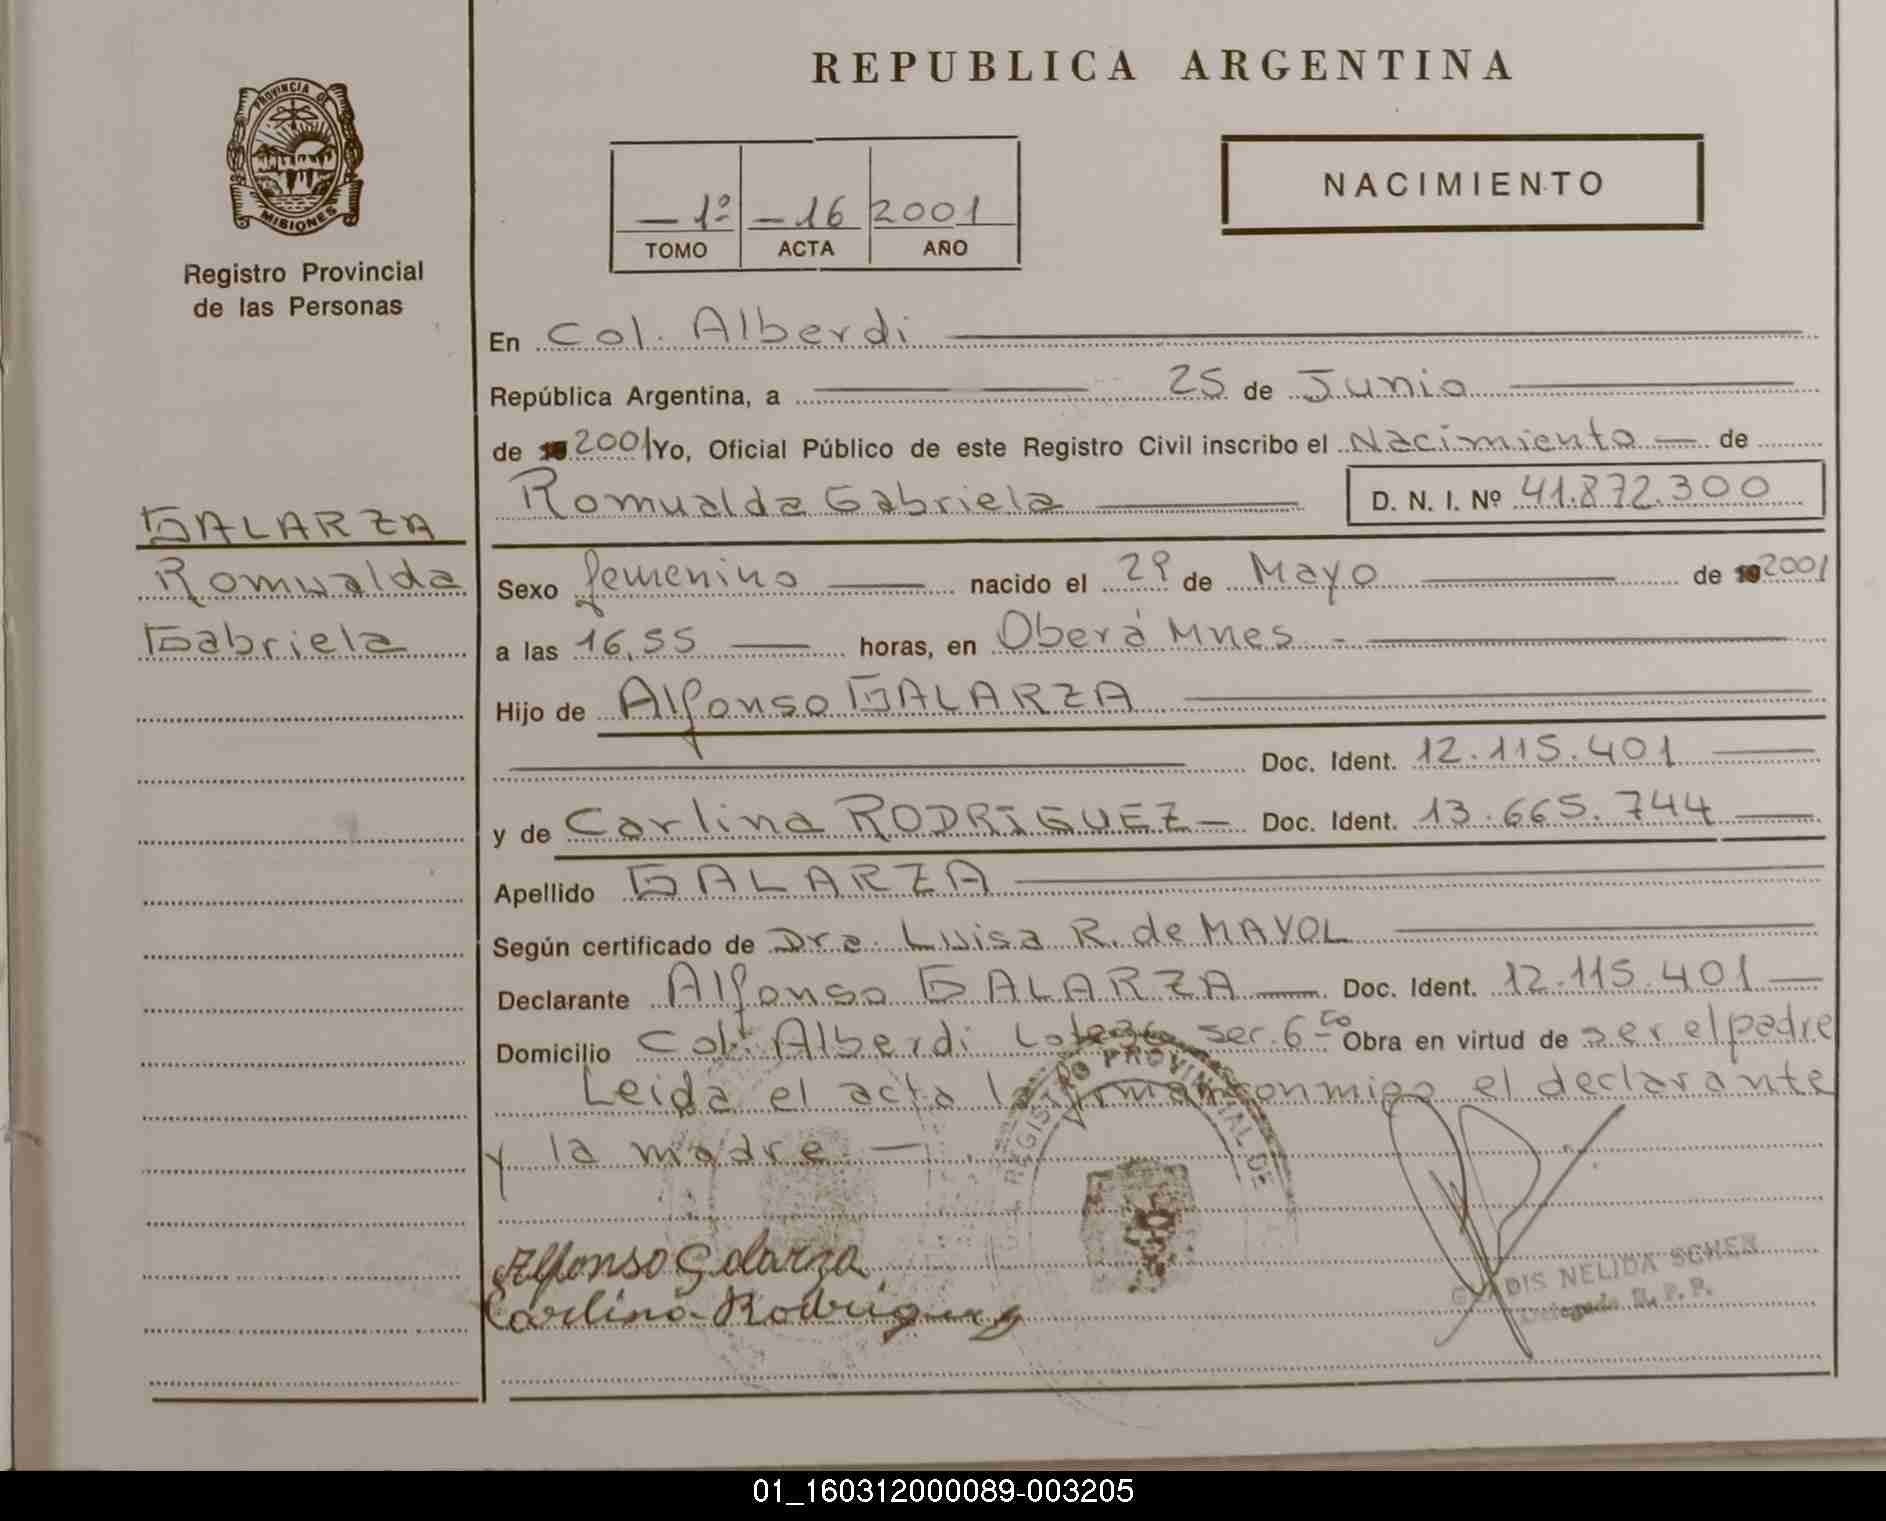 REPUBLICA ARGENTINA
PROVINCIA DE
MISIONES
Registro Provincial
de las Personas
— 1º — 16 2001
TOMO ACTA AÑO
NACIMIENTO
GALARZA
Romualda
Gabriela
En Col. Alberdi
República Argentina, a 25 de Junio
de 2001 Yo, Oficial Público de este Registro Civil inscribo el Nacimiento — de
Romualda Gabriela D. N. I. Nº 41.872.300
Sexo femenino nacido el 29 de Mayo de 2001
a las 16,55 horas, en Oberá Mnes -
Hijo de Alfonso GALARZA
Doc. Ident. 12.115.401
y de Carlina RODRIGUEZ — Doc. Ident. 13.665.744
Apellido GALARZA
Según certificado de Dra. Luisa R. de MAYOL
Declarante Alfonso GALARZA — Doc. Ident. 12.115.401 —
Domicilio Col. Alberdi sec. 6 Obra en virtud de ser el padre
Leida el acta la firman conmigo el declarante
y la madre —
REGISTRO PROVINCIAL DE
Alfonso Galarza
Carlina Rodriguez
DIS NELIDA SCHER
Delegada R. P. P.
01_160312000089-003205